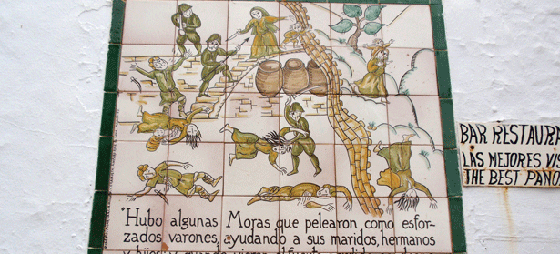 "Hubo algunas Moras que pelearon como esfor-
zados varones, ayudando a sus maridos, hermanos
BAR RESTAURA
LAS MEJORES VIS
THE BEST PANO